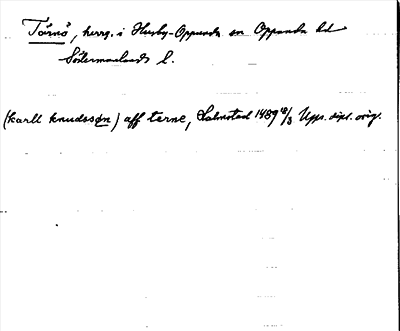 Tärnö, herrg. i Husby-Oppunda sn Oppunda hd
Södermanlands l.
(karll knudsson) aff terne, Halmstad 1489 18/3 Upps. dipl. orig.